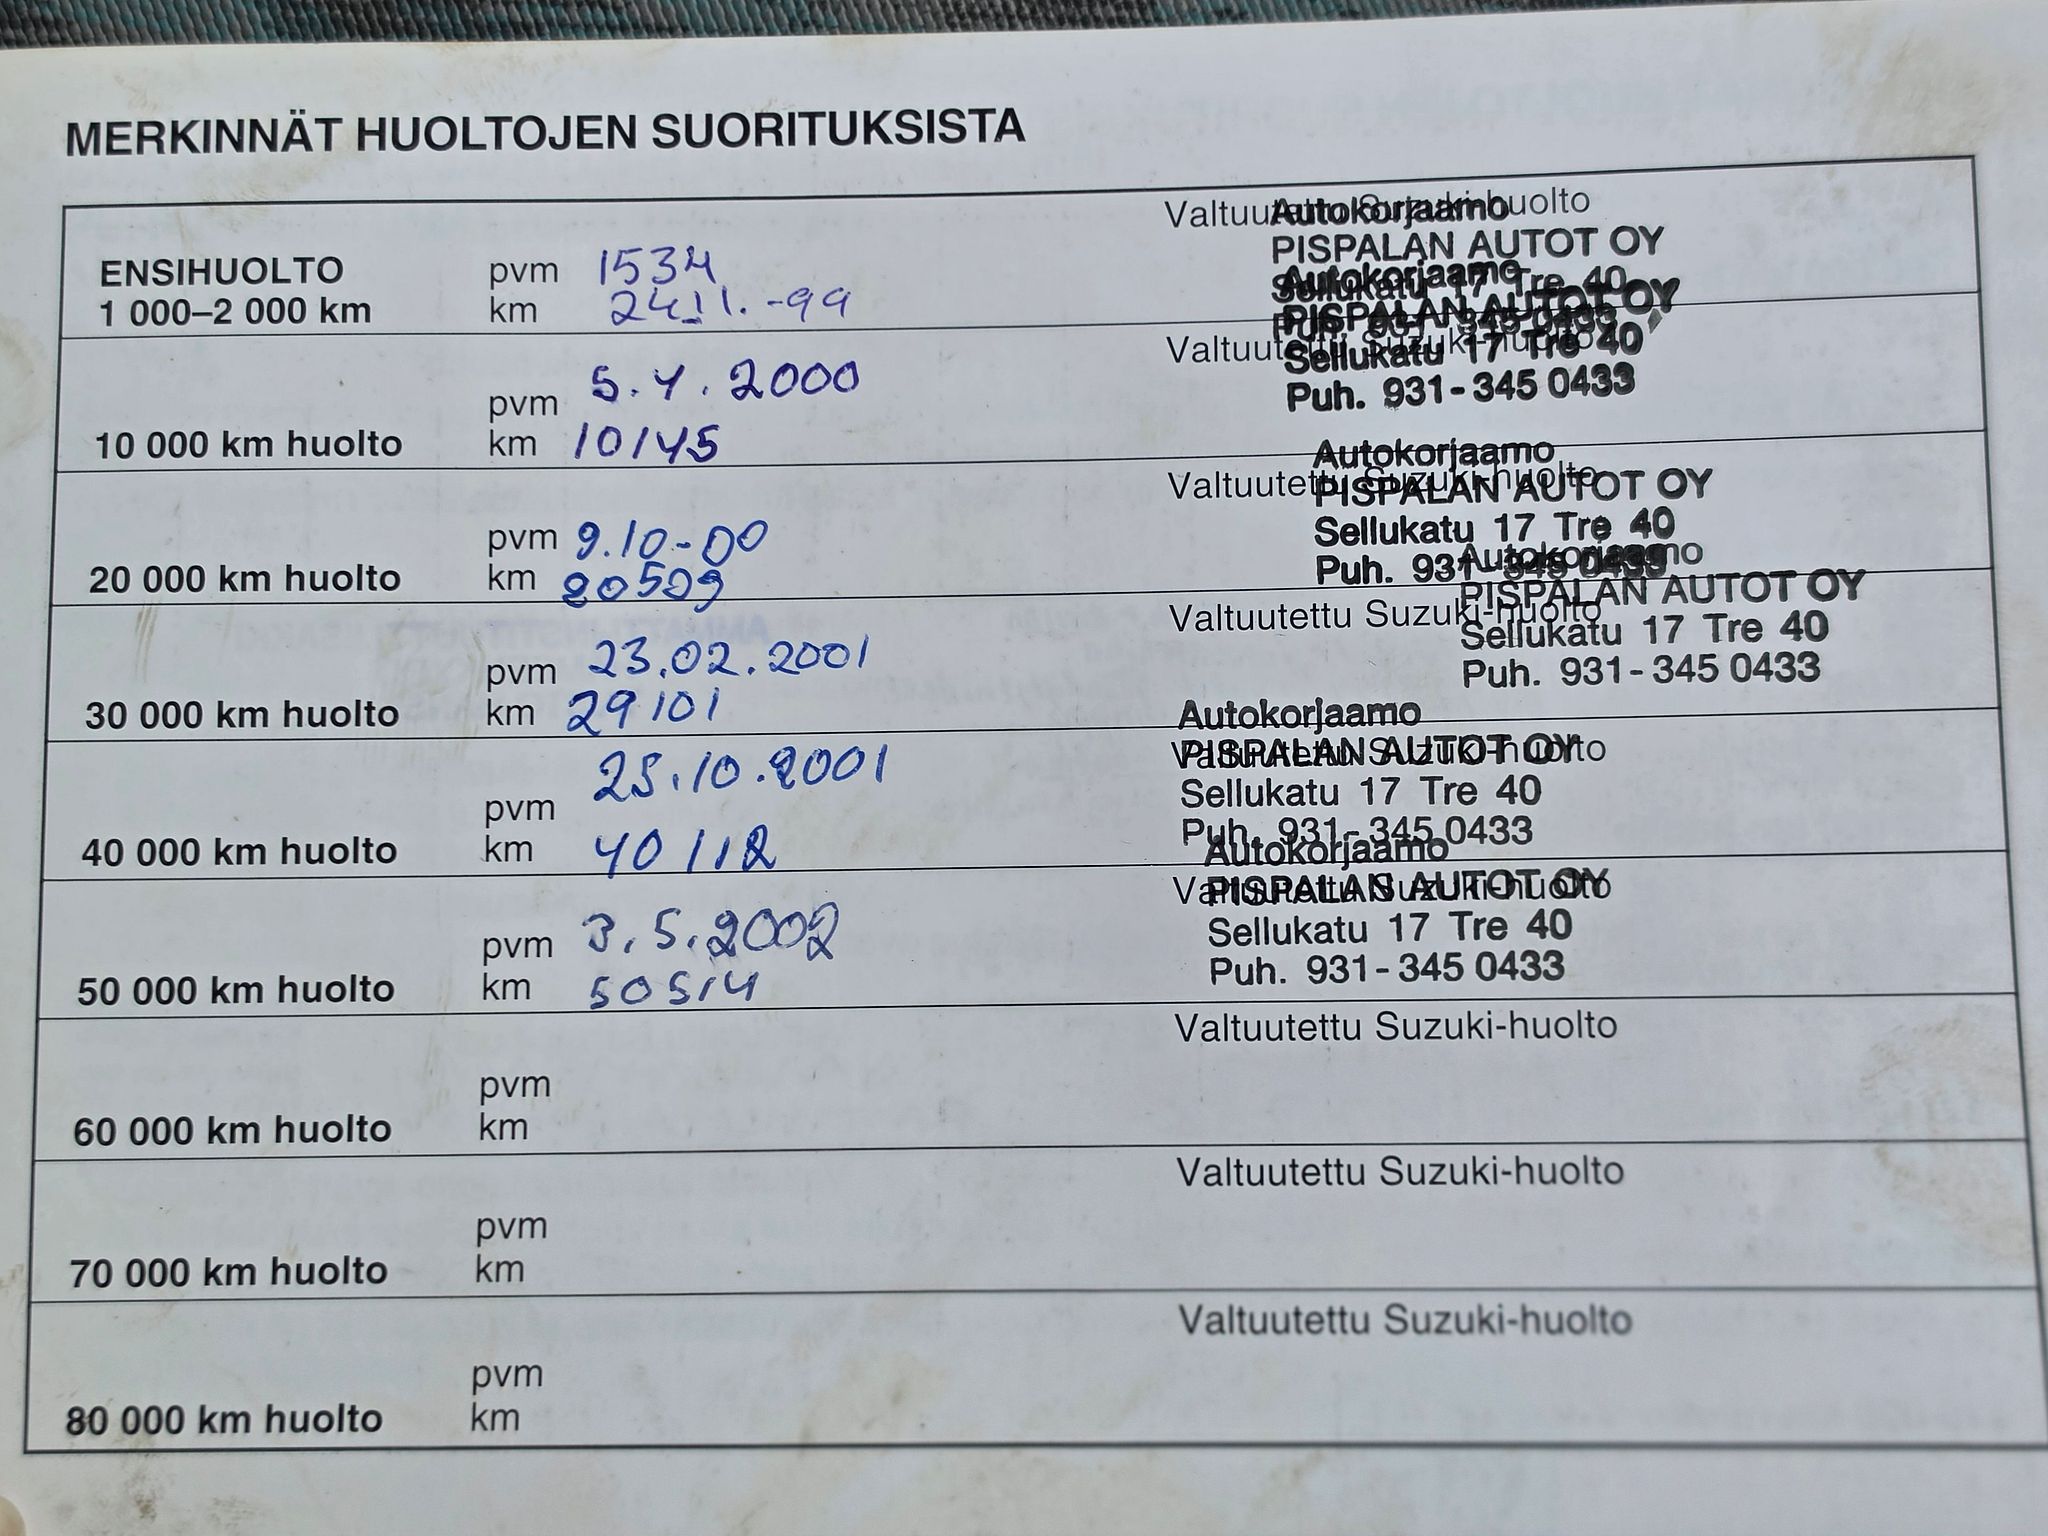 MERKINNÄT HUOLTOJEN SUORITUKSISTA
Valtuutettu Suzuki-huolto
Autokorjaamo
PISPALAN AUTOT OY
Sellukatu 17 Tre 40
Puh. 931-345 0433
ENSIHUOLTO pvm 1534
1 000–2 000 km km 24.11.-99
Valtuutettu Suzuki-huolto
Autokorjaamo
PISPALAN AUTOT OY
Sellukatu 17 Tre 40
Puh. 931-345 0433
pvm 5.4.2000
10 000 km huolto km 10145
Valtuutettu Suzuki-huolto
Autokorjaamo
PISPALAN AUTOT OY
Sellukatu 17 Tre 40
Puh. 931-345 0433
pvm 9.10-00
20 000 km huolto km 20509
Valtuutettu Suzuki-huolto
Autokorjaamo
PISPALAN AUTOT OY
Sellukatu 17 Tre 40
Puh. 931-345 0433
pvm 23.02.2001
30 000 km huolto km 29101
Valtuutettu Suzuki-huolto
Autokorjaamo
PISPALAN AUTOT OY
Sellukatu 17 Tre 40
Puh. 931-345 0433
pvm 25.10.2001
40 000 km huolto km 40112
Valtuutettu Suzuki-huolto
Autokorjaamo
PISPALAN AUTOT OY
Sellukatu 17 Tre 40
Puh. 931-345 0433
pvm 3.5.2002
50 000 km huolto km 50514
Valtuutettu Suzuki-huolto
pvm
60 000 km huolto km
Valtuutettu Suzuki-huolto
pvm
70 000 km huolto km
Valtuutettu Suzuki-huolto
pvm
80 000 km huolto km